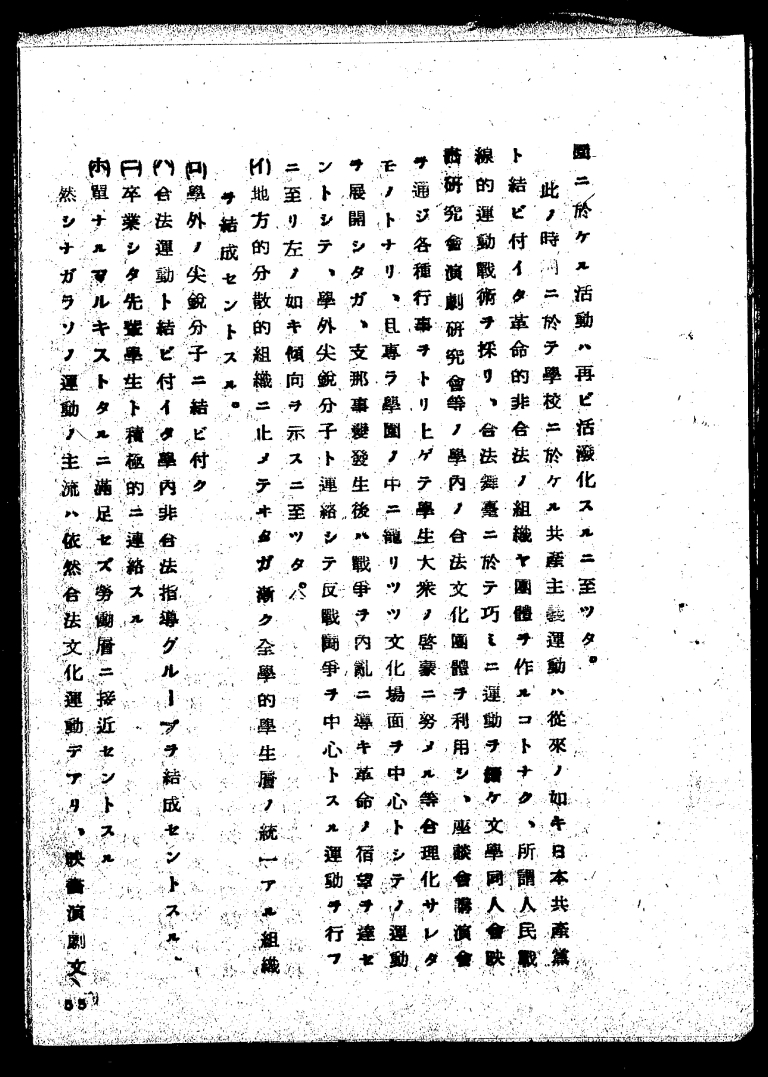 園ニ於ケル活動ハ再ビ活潑化スルニ至ツタ。
此ノ時ニ於テ學校ニ於ケル共產主義運動ハ從來ノ如キ日本共產黨
ト結ビ付イタ革命的非合法ノ組織ヤ團體ヲ作ルコトナク、所謂人民戰
線的運動戰術ヲ採リ、合法舞臺ニ於テ巧ミニ運動ヲ續ケ文學同人會映
畫研究會演劇研究會等ノ學內ノ合法文化團體ヲ利用シ、座談會講演會
ヲ通ジ各種行事ヲトリ上ゲテ學生大衆ノ啓蒙ニ努メル等合理化サレタ
モノトナリ、且專ラ學園ノ中ニ籠リツツ文化場面ヲ中心トシテノ運動
ヲ展開シタガ、支那事變發生後ハ戰爭ヲ內亂ニ導キ革命ノ宿望ヲ達セ
ントシテ、學外尖銳分子ト連絡シテ反戰鬪爭ヲ中心トスル運動ヲ行フ
ニ至リ左ノ如キ傾向ヲ示スニ至ツタ。
(イ)地方的分散的組織ニ止メテキタガ漸ク全學的學生層ノ統一アル組織
ヲ結成セントスル。
(ロ)學外ノ尖銳分子ニ結ビ付ク
(ハ)合法運動ト結ビ付イタ學內非合法指導グループヲ結成セントスル、
(ニ)卒業シタ先輩學生ト積極的ニ連絡スル
(ホ)單ナルマルキストタルニ滿足セズ勞働層ニ接近セントスル
然シナガラソノ運動ノ主流ハ依然合法文化運動デアリ、映畫演劇文
55